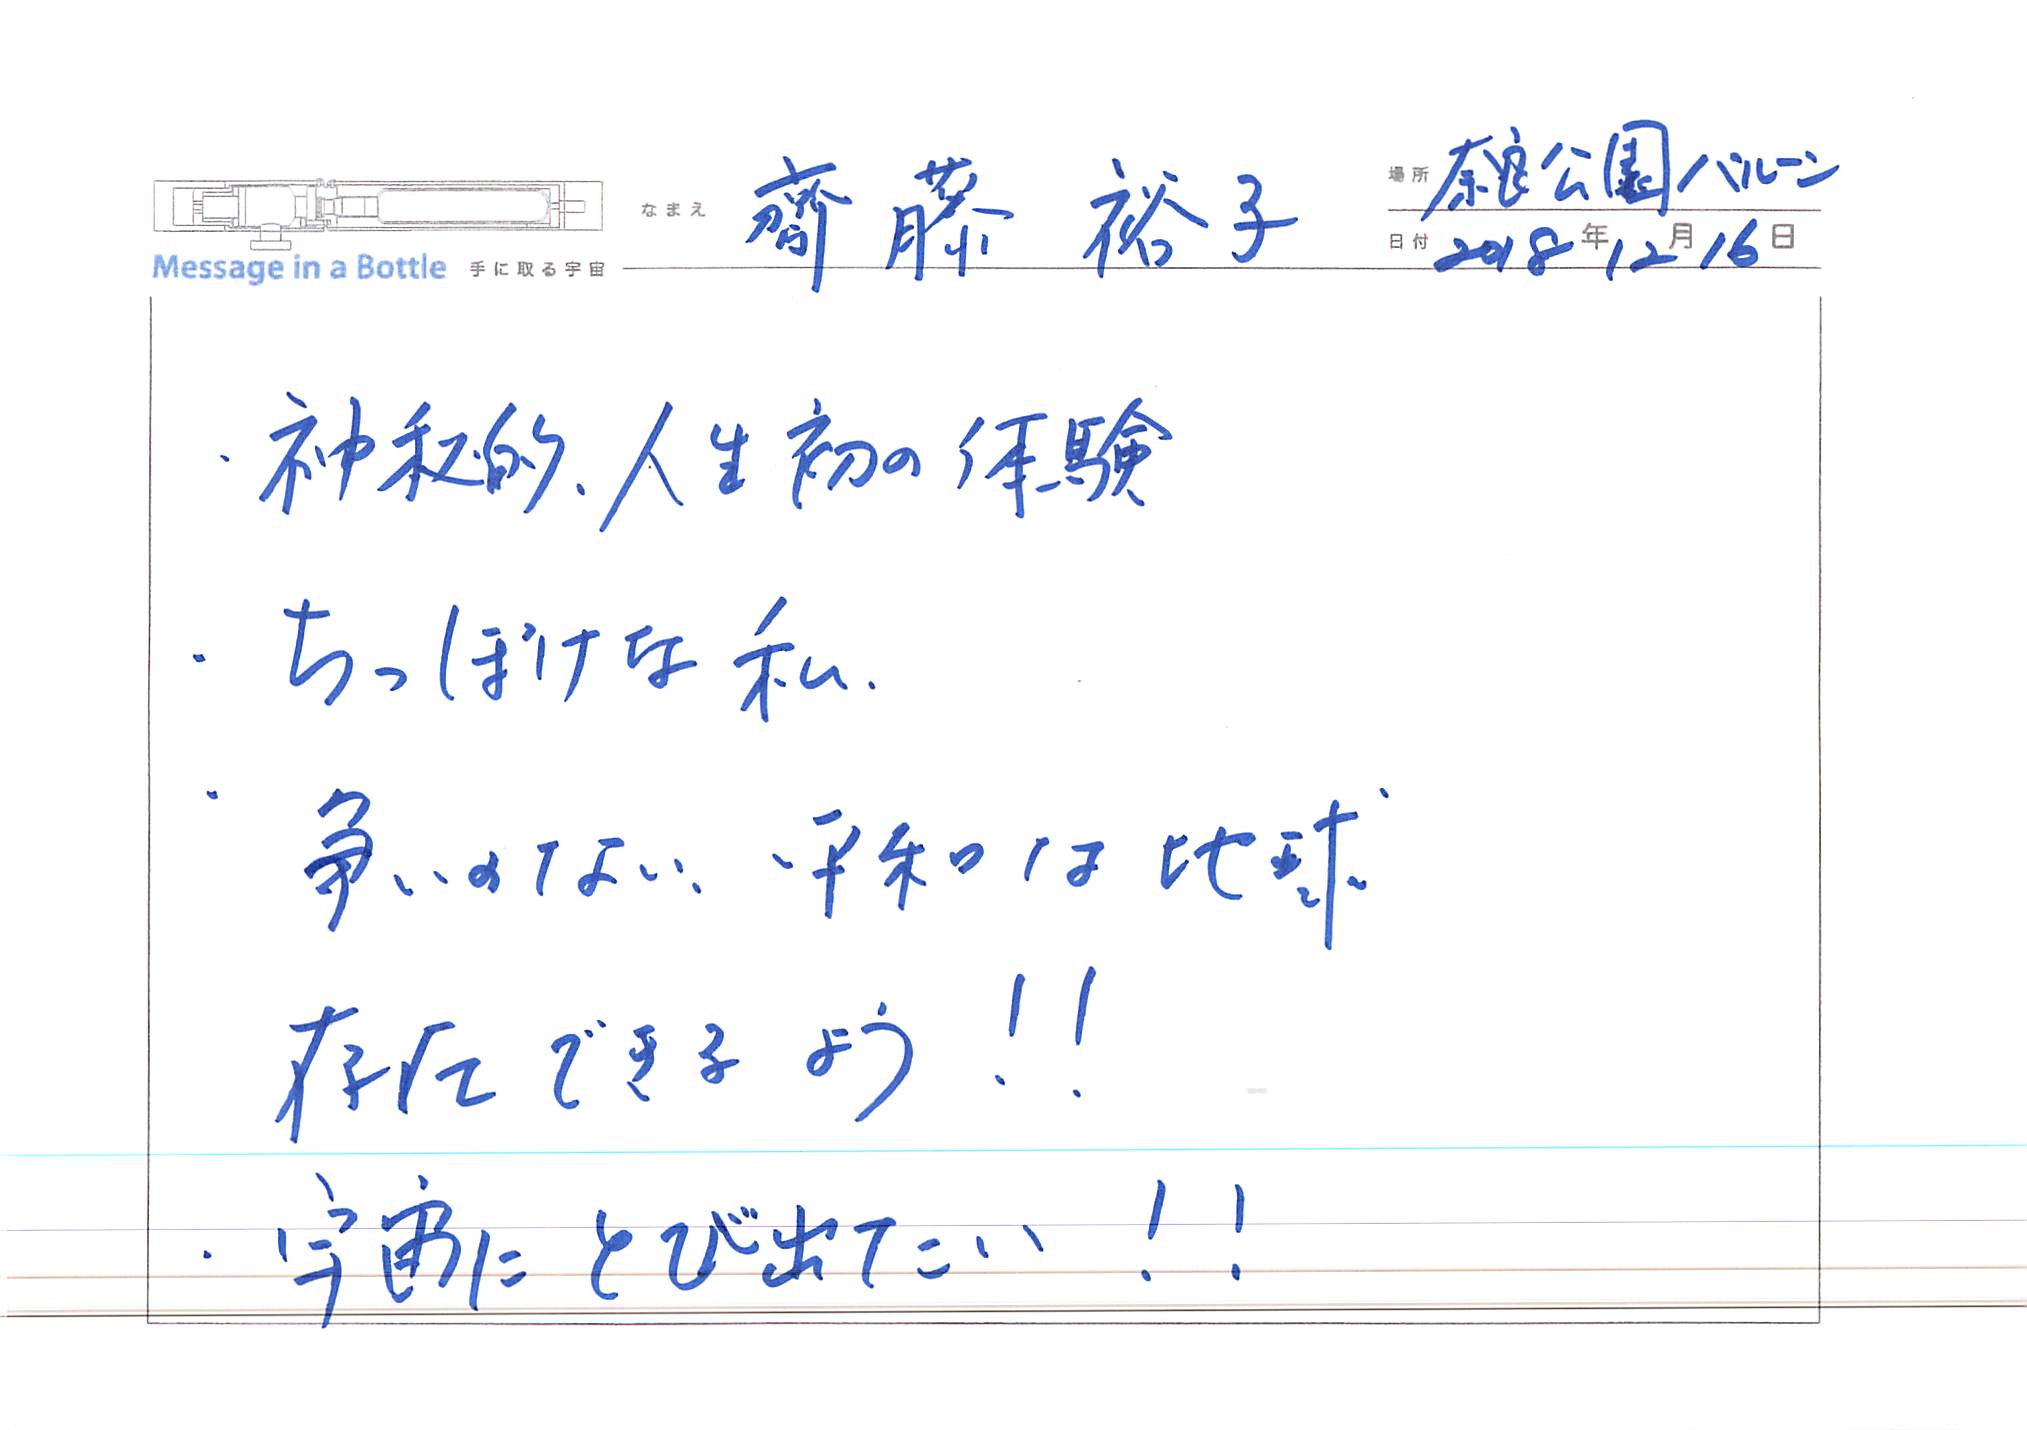 なまえ 齋藤 裕子
場所 奈良公園バルーン
日付 2018年12月16日
Message in a Bottle 手に取る宇宙
・神秘的、人生初の体験
・ちっぽけな私.
・争いのない、平和な地球
存在できるよう!!
・宇宙にとび出てたい!!